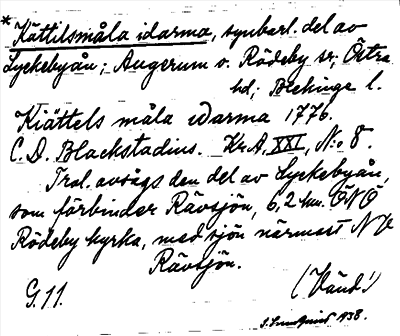 * Kättilsmåla idarma, synbarl. del av
Lyckebyån; Augerum o. Rödeby sr, Östra
hd; Blekinge l.
Kiättels måla idarma 1776.
C. D. Blackstadius. Kr.A. XXI, N:o 8.
Trol. avsågs den del av Lyckebyån,
som förbinder Rävsjön, 6,2 km. ÖNÖ
Rödeby kyrka, med sjön närmast NV
Rävsjön.
G. 11. (Vänd!)
S. Lundquist 1938.